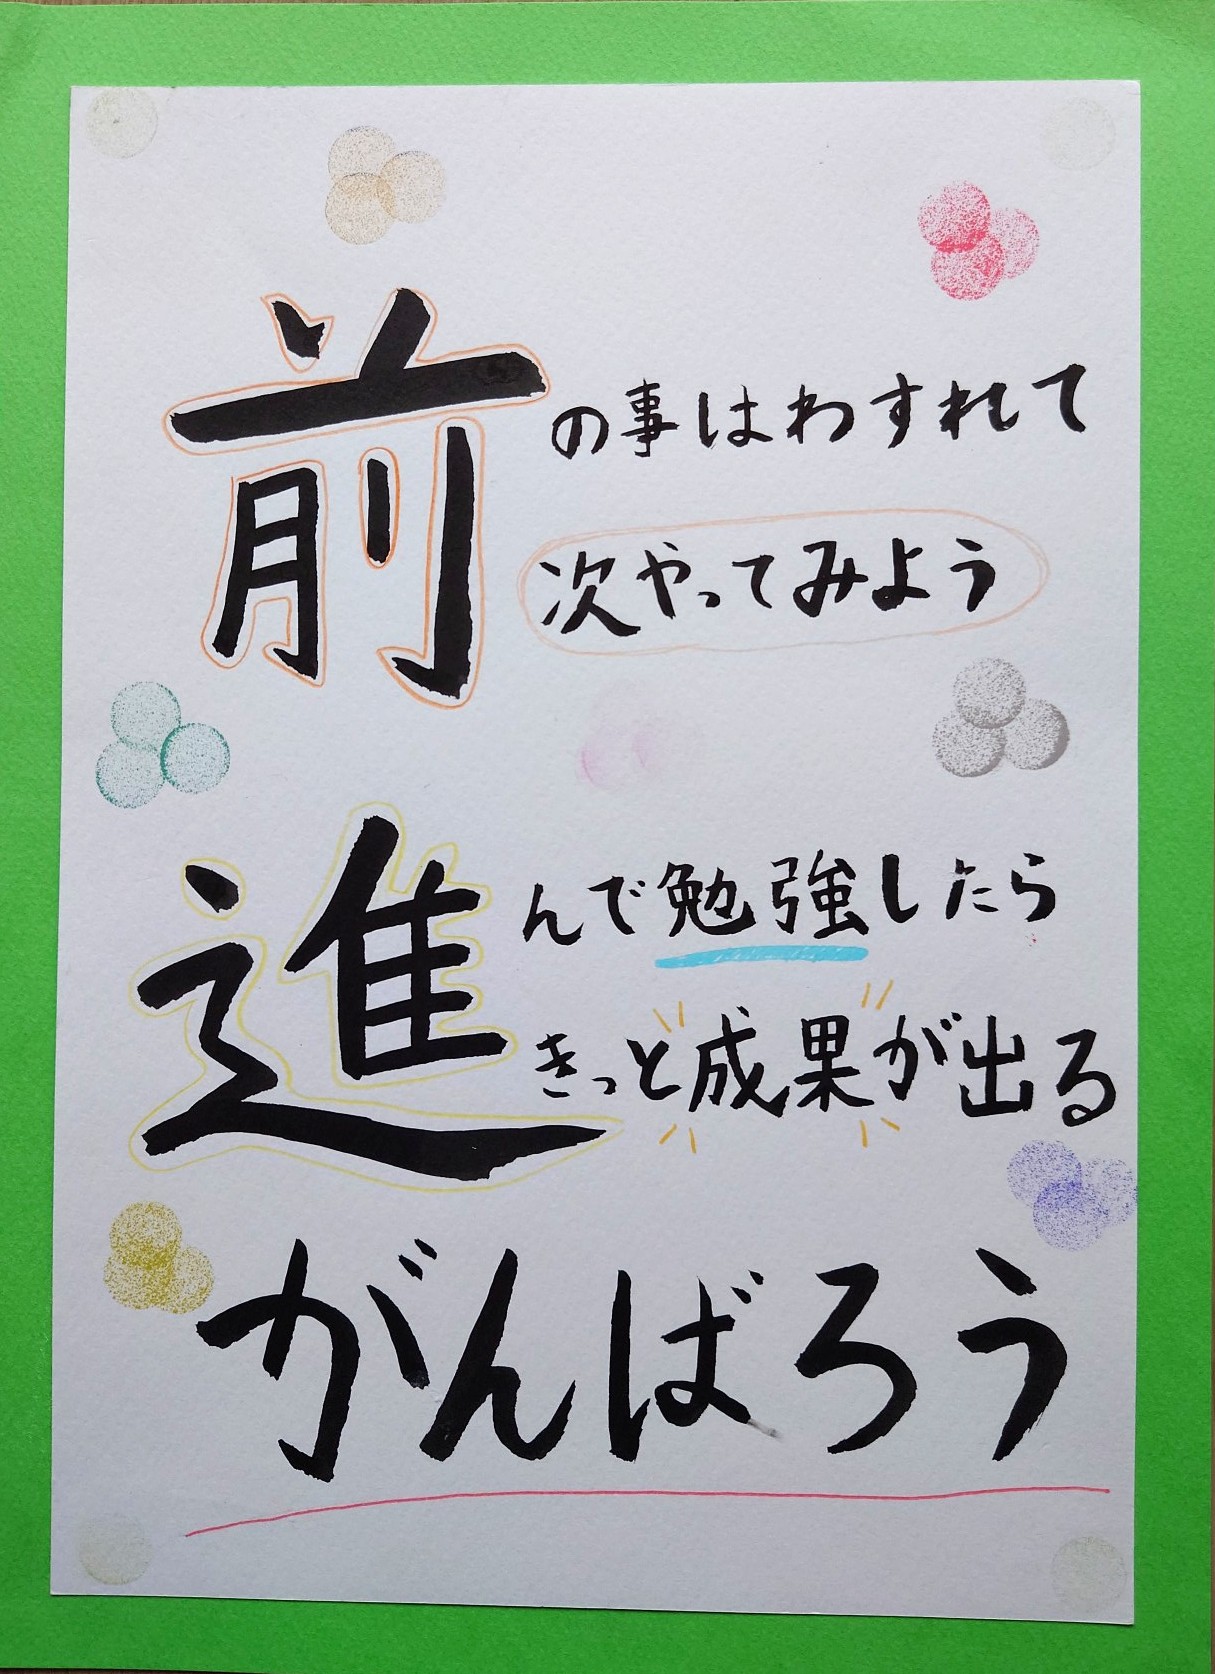 前の事はわすれて
次やってみよう
進んで勉強したら
きっと成果が出る
がんばろう